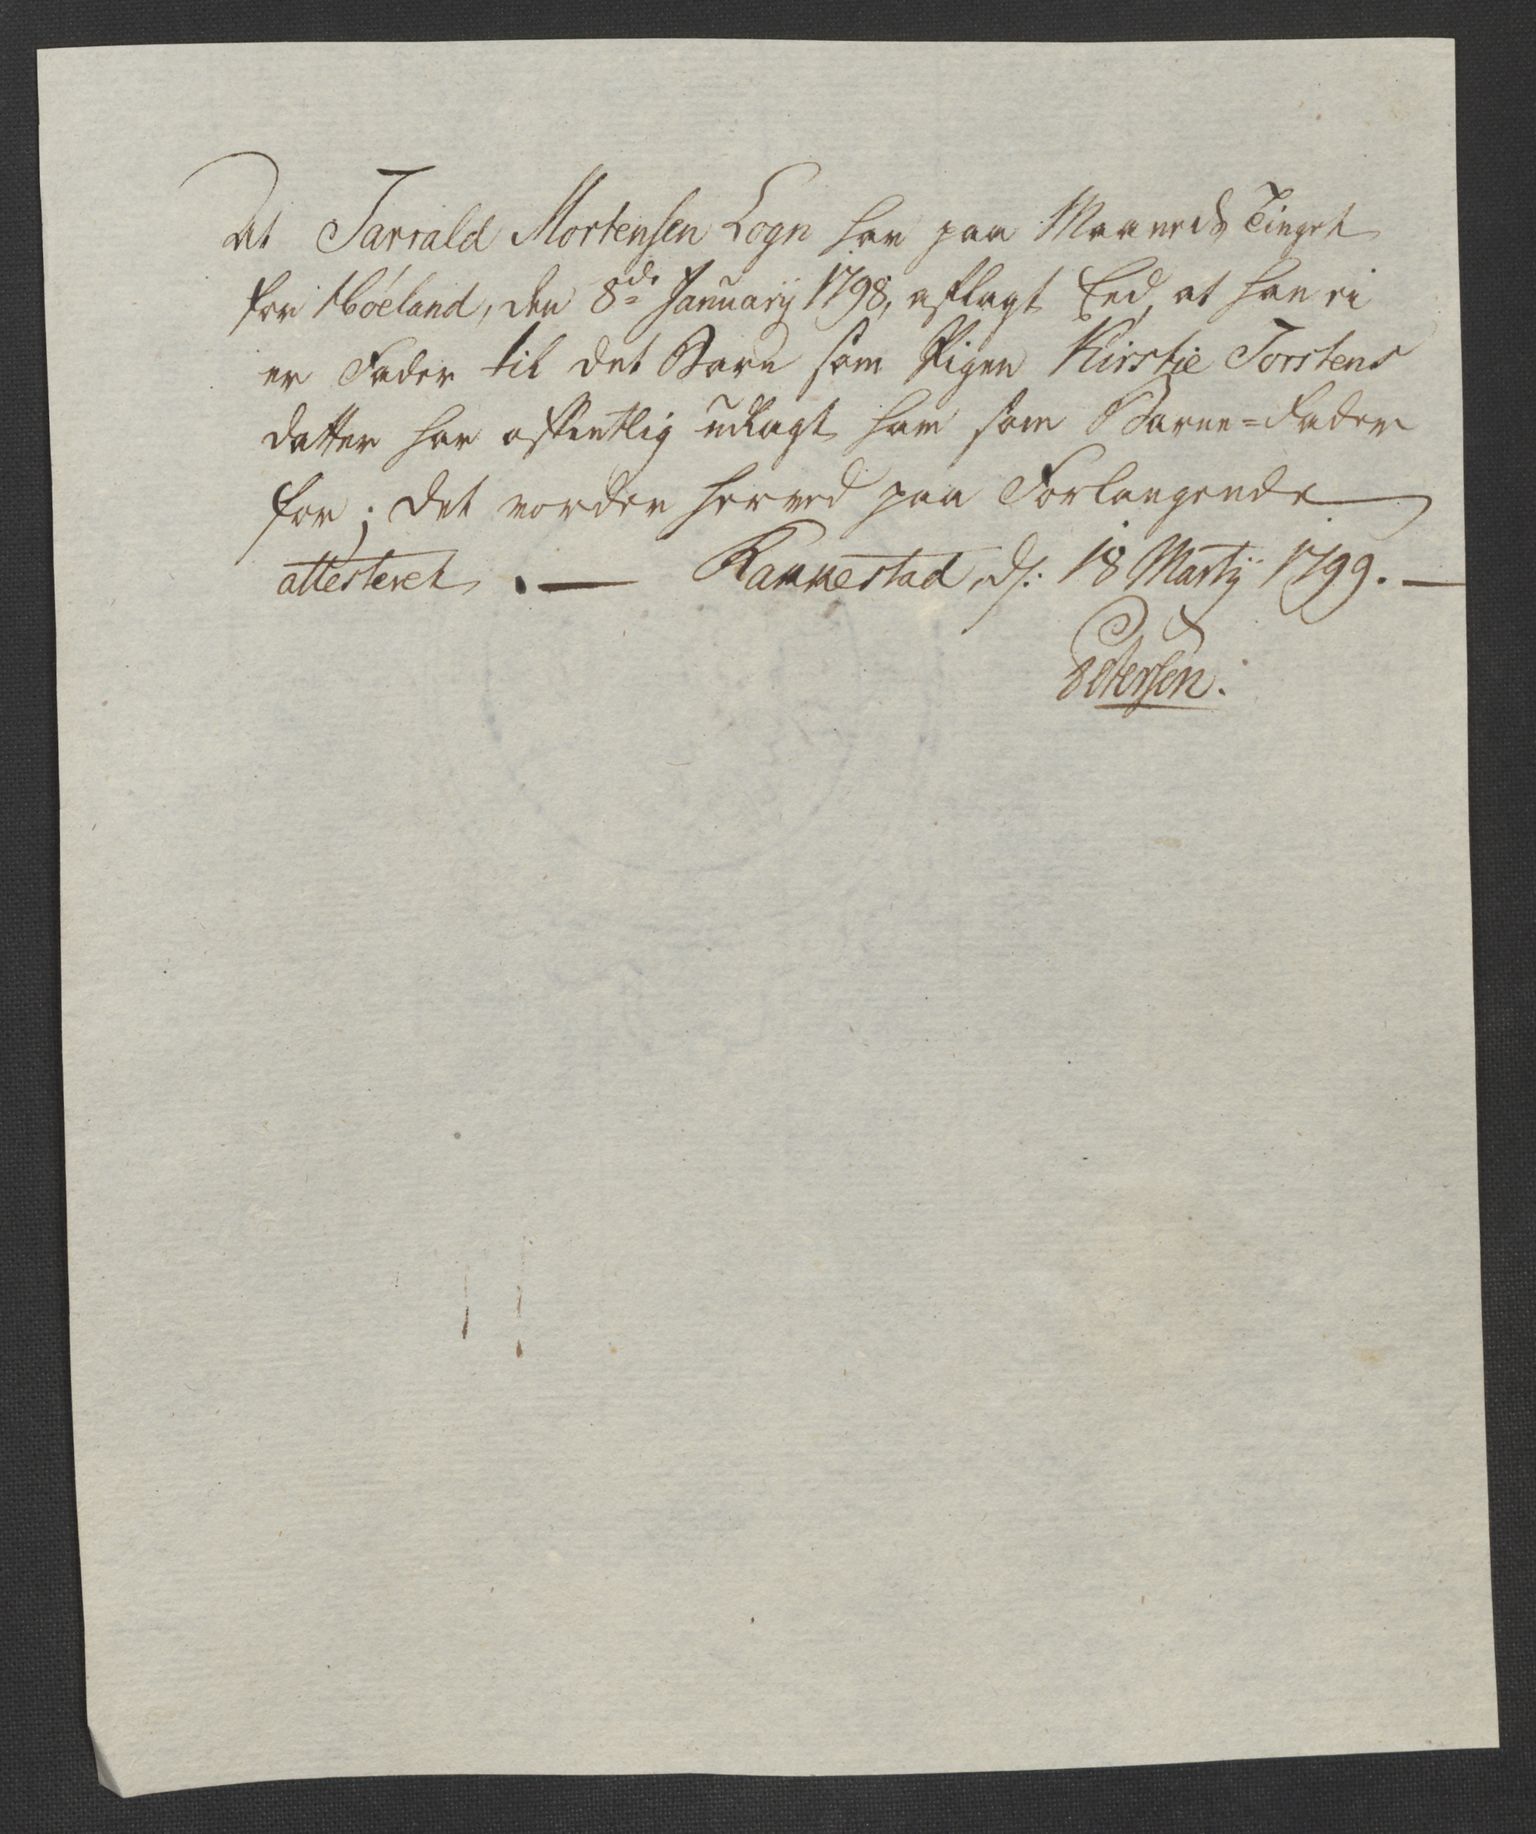 At Tarrald Mortensen Logn har paa Maaneds Tinget
for Høeland, den 8de January 1798, aflagt Eed, at han ei
er Fader til det Barn som Pigen Kirstje Torstens
datter har offentlig udlagt ham som Barne=Fader
for; det vorder herved paa Forlangende
attesteret. — Rannestad, d: 18 Martij 1799. —
Petersen.